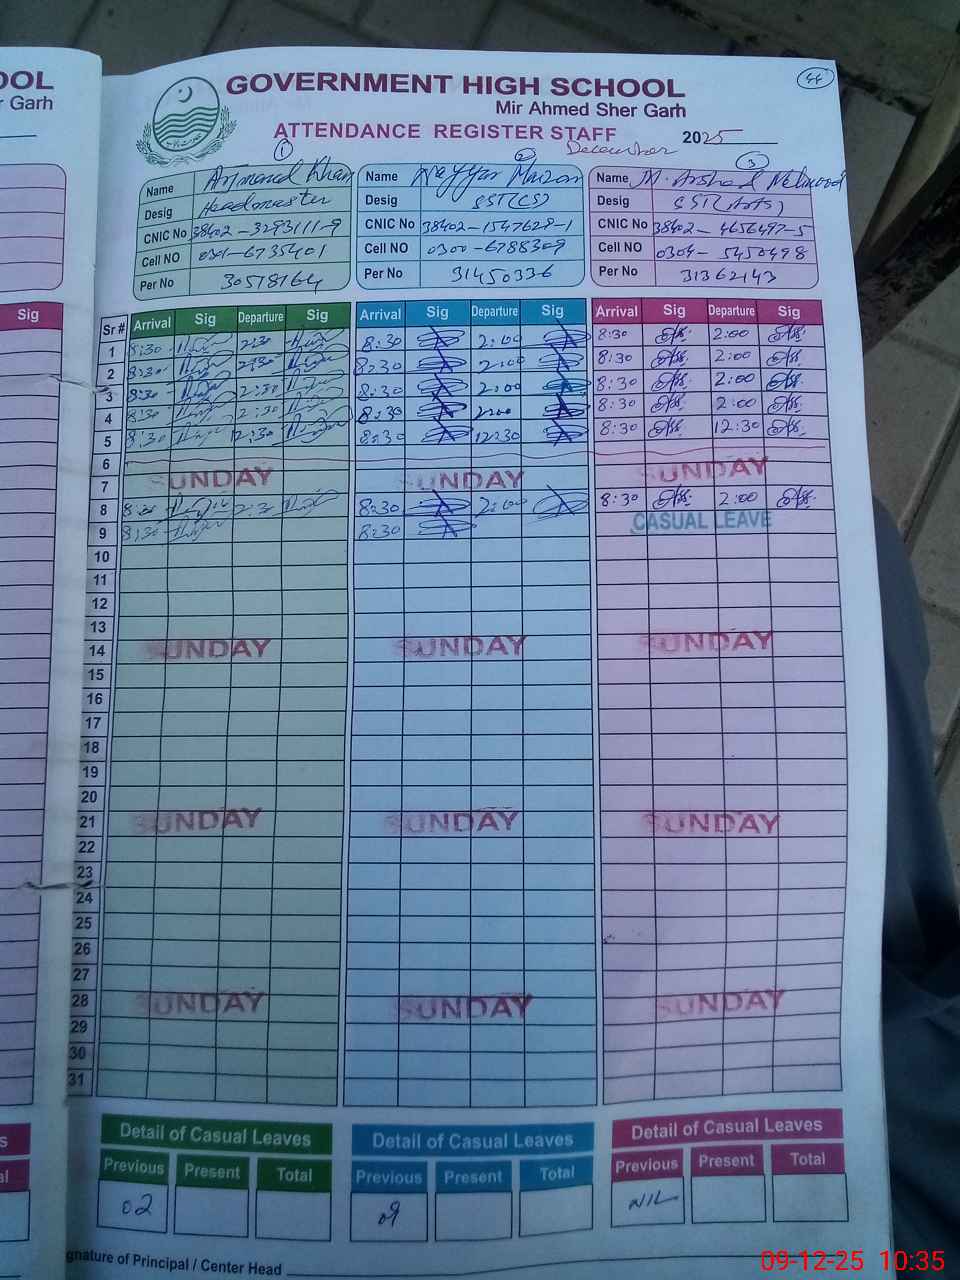 OOL
r Garh
Sig
44
GOVERNMENT HIGH SCHOOL
Mir Ahmed Sher Garh
ATTENDANCE REGISTER STAFF 2025
December
1 2 3
Name Name M. Arshad Mehmood
Desig Headmaster Desig SST(CS) Desig SST(Arts)
CNIC No 38402-3293111-9 CNIC No 38402-1547629-1 CNIC No 38402-4656497-5
Cell NO 0301-6735401 Cell NO 0300-6788309 Cell NO 0304-5450498
Per No 30518164 Per No 31450336 Per No 31362143
Sr # Arrival Sig Departure Sig Arrival Sig Departure Sig Arrival Sig Departure Sig
1 8:30 2:30 8:30 2:00 8:30 2:00
2 8:30 2:30 8:30 2:00 8:30 2:00
3 8:30 2:30 8:30 2:00 8:30 2:00
4 8:30 2:30 8:30 2:00 8:30 2:00
5 8:30 12:30 8:30 12:30 8:30 12:30
6
7 SUNDAY SUNDAY SUNDAY
8 8:30 2:30 8:30 2:00 8:30 2:00
9 8:30 8:30 CASUAL LEAVE
10
11
12
13
14 SUNDAY SUNDAY SUNDAY
15
16
17
18
19
20
21 SUNDAY SUNDAY SUNDAY
22
23
24
25
26
27
28 SUNDAY SUNDAY SUNDAY
29
30
31
Detail of Casual Leaves Detail of Casual Leaves Detail of Casual Leaves
Previous Present Total Previous Present Total Previous Present Total
02 09 NIL
gnature of Principal / Center Head
09-12-25 10:35